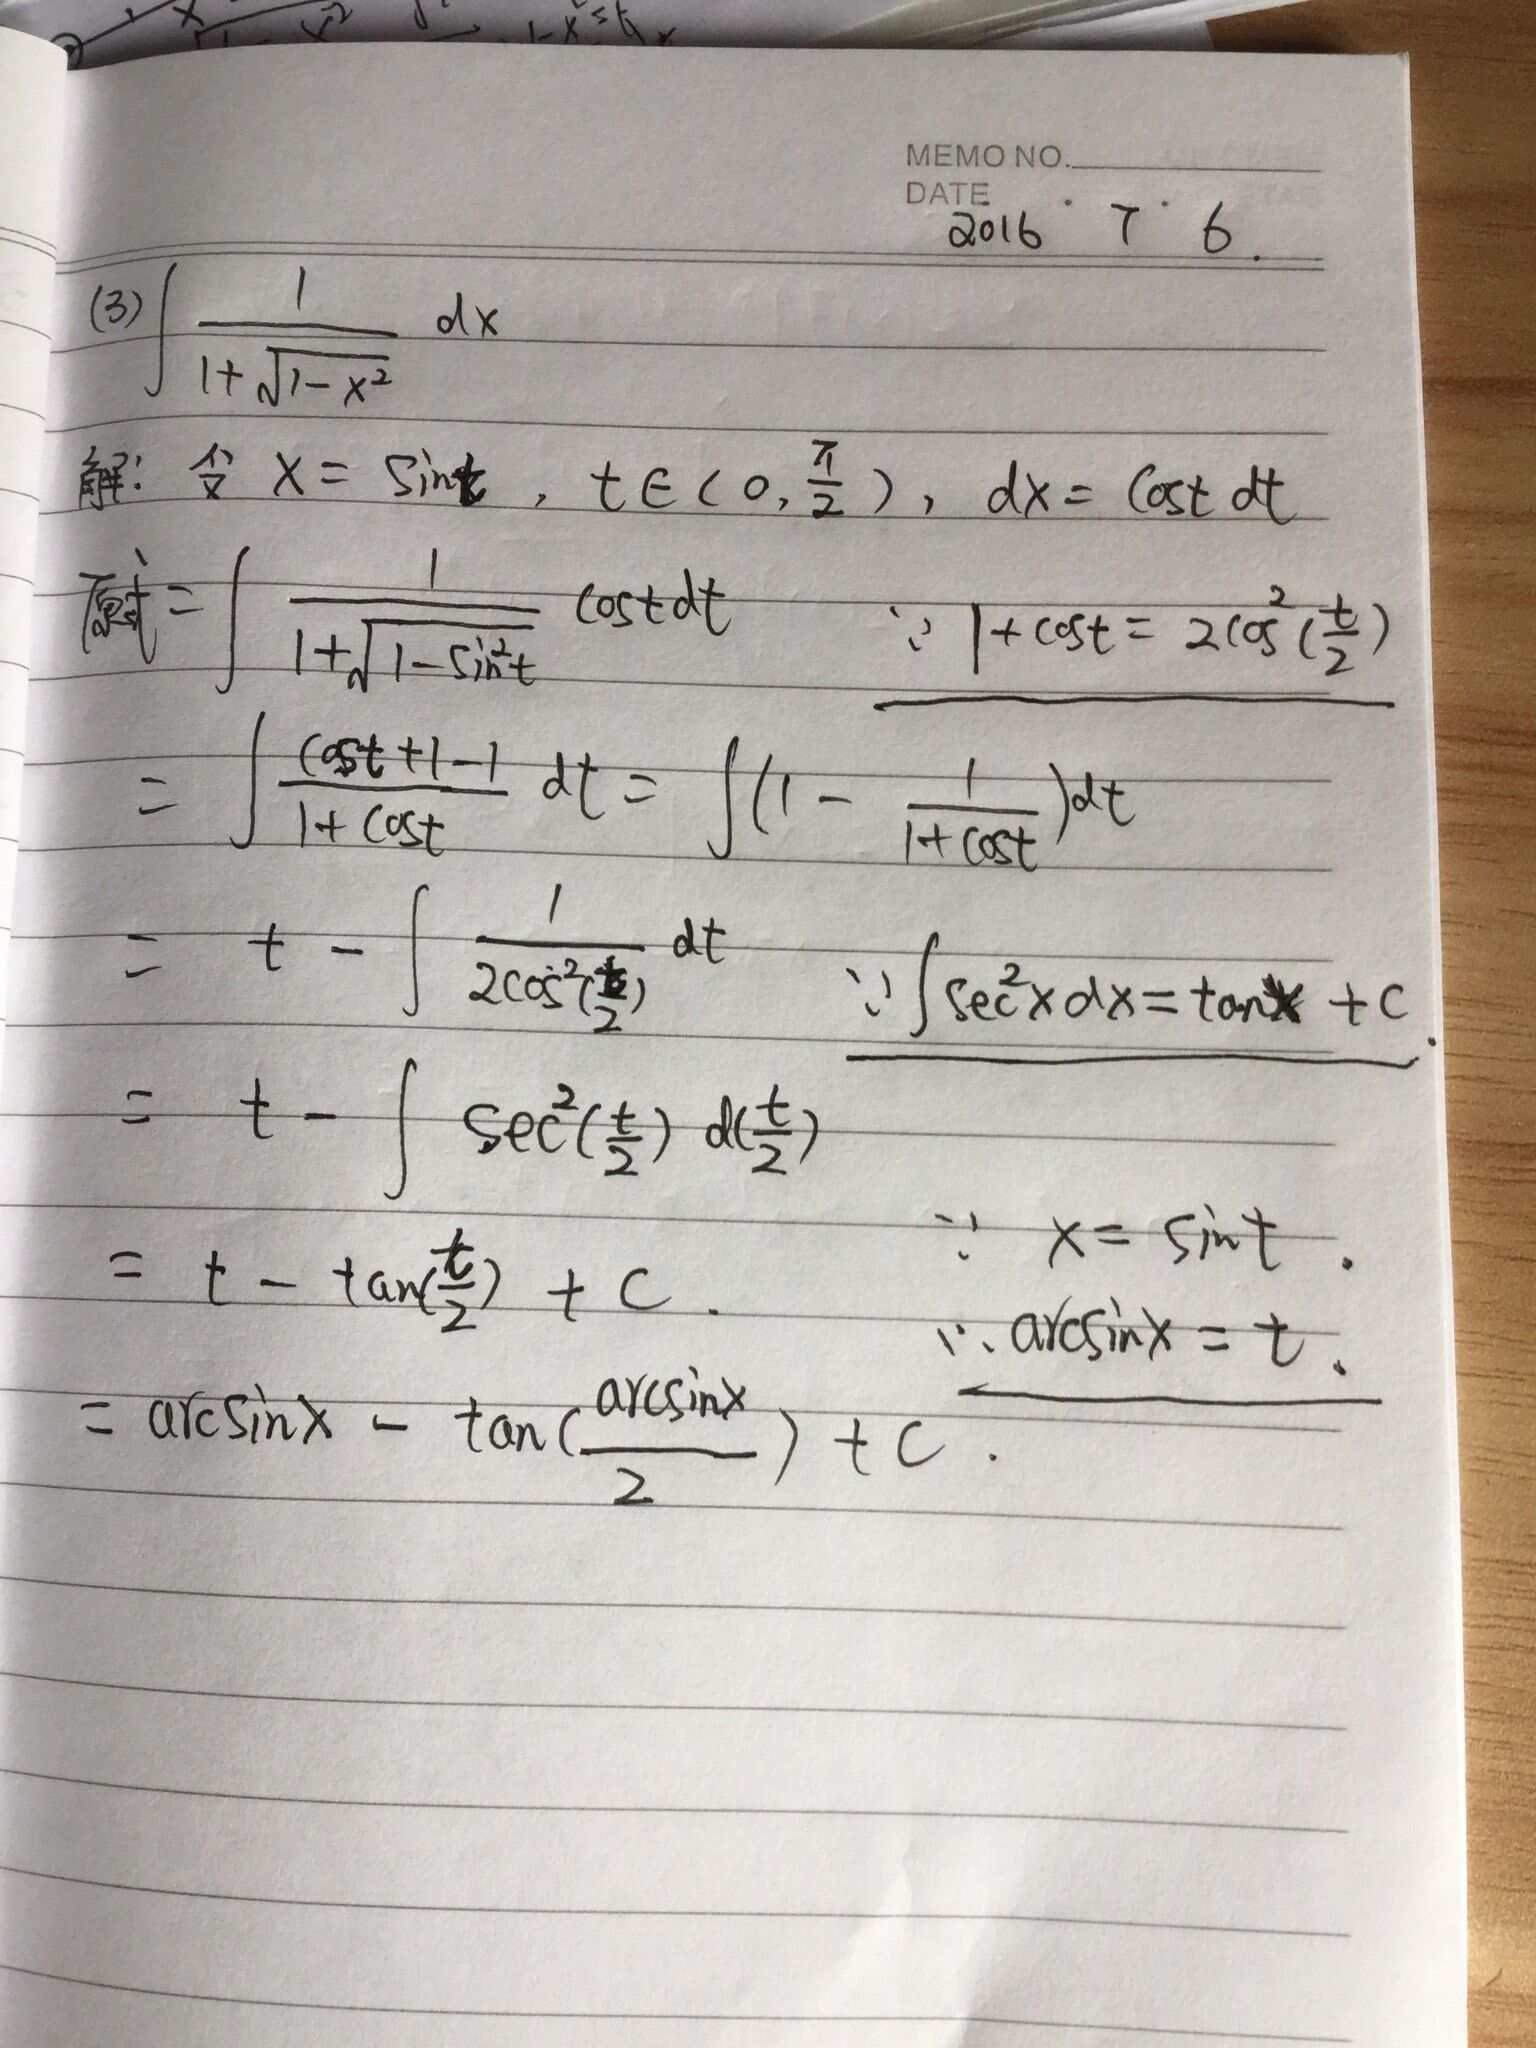 MEMO NO.
DATE 2016 · 7 · 6.
(3) ∫ 1/(1+√(1-x²)) dx
解: 令 x = sint , t∈(0, π/2) , dx = cost dt
原式 = ∫ 1/(1+√(1-sin²t)) cost dt ∵ 1+cost = 2cos²(t/2)
= ∫ (cost+1-1)/(1+cost) dt = ∫(1 - 1/(1+cost))dt
= t - ∫ 1/(2cos²(t/2)) dt ∵ ∫sec²x dx = tanx + C.
= t - ∫ sec²(t/2) d(t/2)
= t - tan(t/2) + C . ∵ x = sint .
∵ arcsinx = t .
= arcsinx - tan(arcsinx/2) + C .